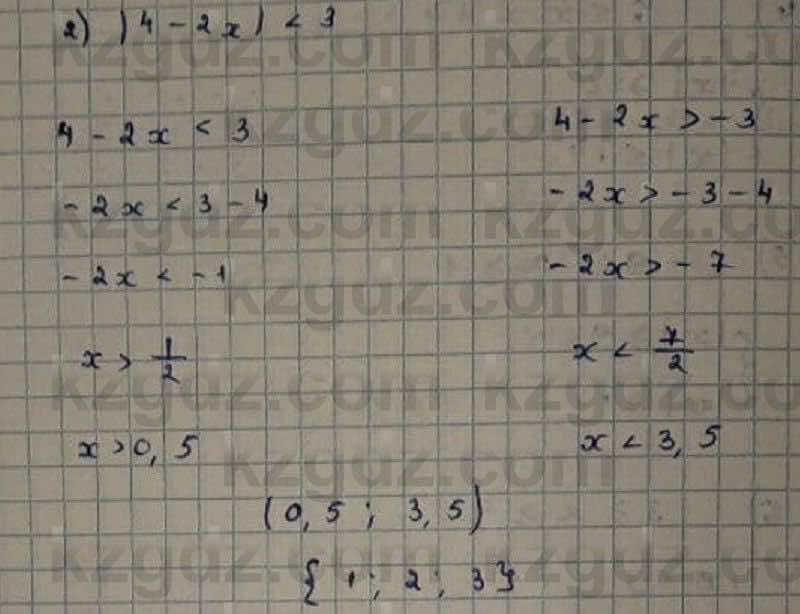 2) |4 - 2x| < 3
4 - 2x < 3    4 - 2x > -3
-2x < 3 - 4    -2x > -3 - 4
-2x < -1    -2x > -7
x > 1/2    x < 7/2
x > 0,5    x < 3,5
(0,5 ; 3,5)
{1; 2; 3}
kzgdz.com